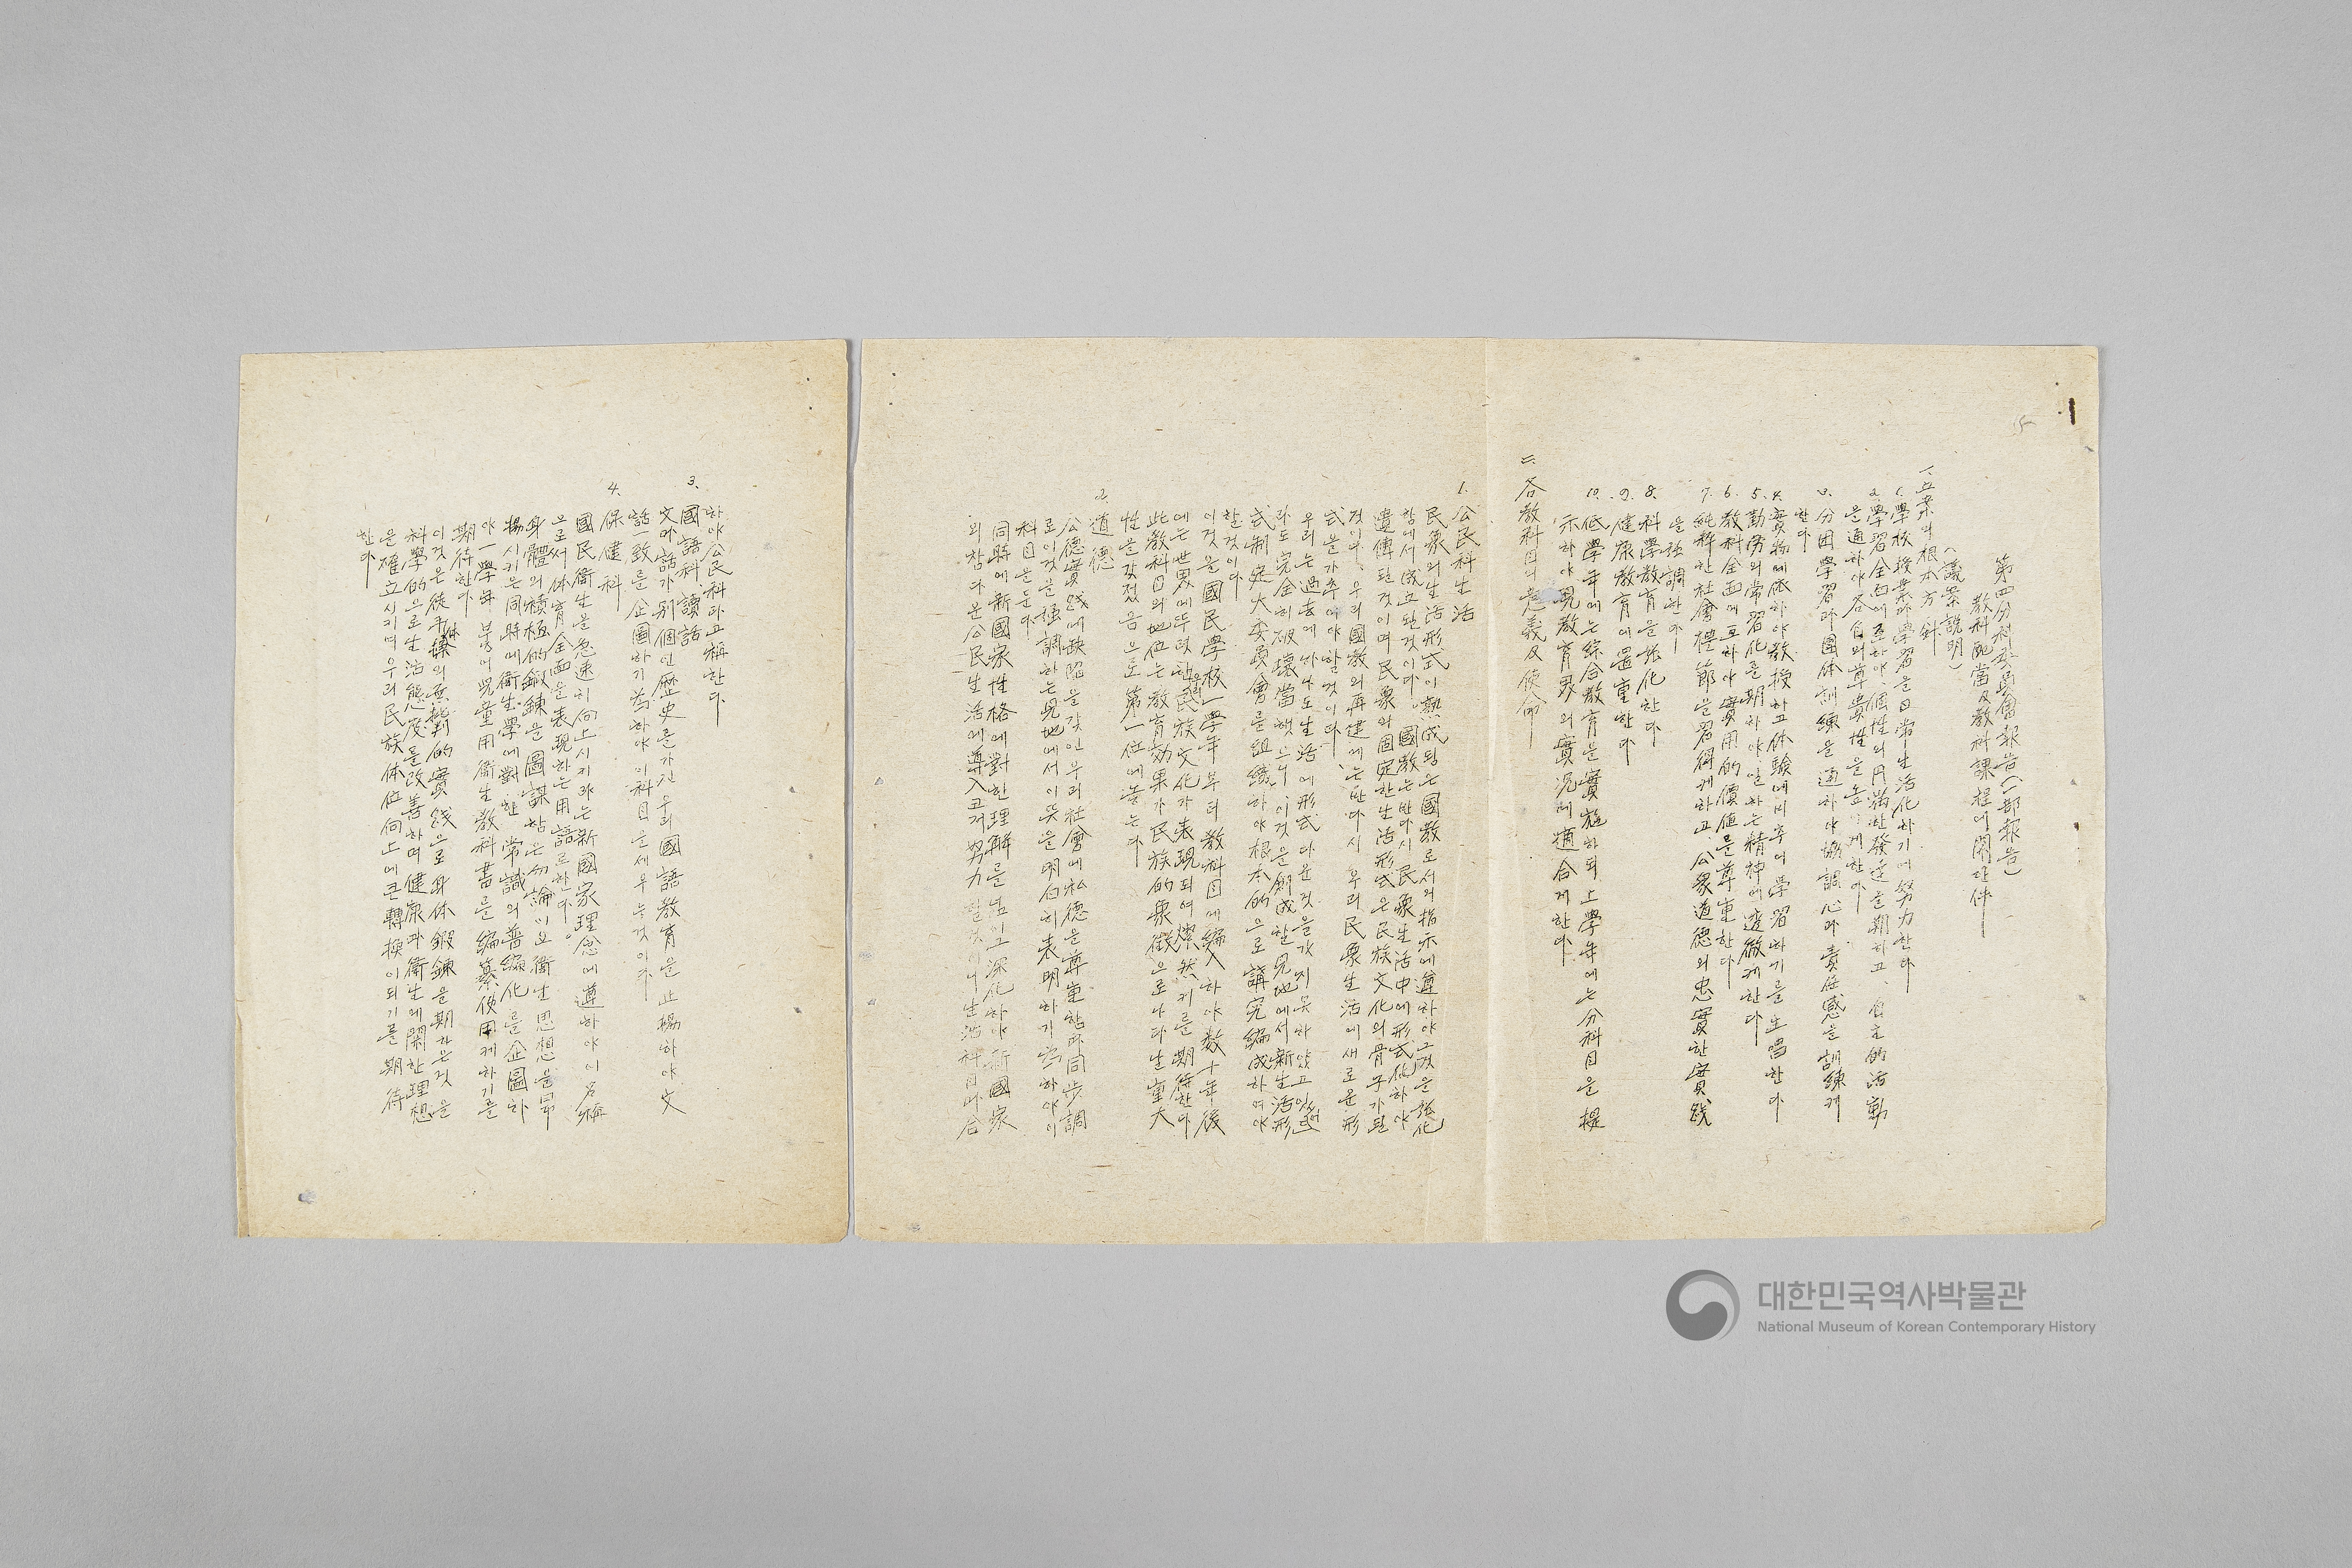 第四分科委員會報告(一部報告)
敎科配當及敎科課程에關한件
(議案說明)
一. 立案의根本方針
1. 學校授業과學習을日常生活化하기에努力한다
2. 學習全面에亘하야 個性의円滿한發達을期하고、自主的活動
을通하야各自의尊貴性을 게한다
3. 分団學習과團体訓練을通하야協調心과責任感을訓練케
한다
4. 實物에依하야敎授하고体驗에비추어學習하기를主唱한다
5. 勤勞의常習化를期하야일하는精神에透徹케한다
6. 敎科全面에亘하야實用的價値를尊重한다
7. 純粹한社會禮節을習得케하고、公衆道德의忠實한實践
을强調한다
8. 科學敎育을强化한다
9. 健康敎育에置重한다
10. 低學年에는綜合敎育을實施하되上學年에는分科目을提
示하야現敎育界의實況에適合케한다
二. 各敎科目의意義及使命
1. 公民科生活
民衆의生活形式이熟成됨은國敎로서의指示에遵하야그것을强化
함에서成立된것이다。國敎는반다시民衆生活中에形式化하야
遺傳된것이며民衆의固定한生活形式은民族文化의骨子가된
것이다、우리國敎의再建에는반다시 우리民衆生活에새로운形
式을가추어야할것이다
우리는過去에나마도生活에形式다운것을갖지못하얏고잇섯
라도完全히破壞當햇으니이것을創成한見地에서新生活形
式制定大委員會를組織하야根本的으로講究編成하여야
할것이다
이것을國民學校一學年부터敎科目에編入하야数十年後
에는世界에뚜렷한우리民族文化가表現되여燦然키를期待한다
此敎科目의地位는敎育効果가民族的象徵으로나타날重大
性을갖젓음으로第一位에놓는다
2. 道德
公德實践에缺陷을갖인우리社會에私德을尊重함과同步調
로이것을强調하는見地에서이뜻을明白히表明하기爲하야이
科目을둔다
同時에新國家性格에對한理解를 深化하야新國家
의참다운公民生活에導入코저努力할것이니生活科目과合
하야公民科라고稱한다
3. 國語科 讀話
文과話가別個인歷史를가진우리國語敎育을止揚하야文
話一致를企圖하기爲하야이科目을세우는것이다
4. 保健科
國民衛生을急速히向上시키랴는新國家理念에遵하야이名稱
으로써体育全面을表現하는用語로한다。
身體의積極的鍛鍊을圖謀함은勿論이요衛生思想을昂
揚시키는同時에衛生學에對한常識의普編化를企圖하
야一學年붙어兒童用衛生敎科書를編纂使用케하기를
期待한다
이것은徒手体操의無批判的實践으로身体鍛鍊을期하는것을
科學的으로生活態度를改善하며健康과衛生에關한理想
을確立시키며우리民族体位向上에큰轉換이되기를期待
한다
대한민국역사박물관
National Museum of Korean Contemporary History